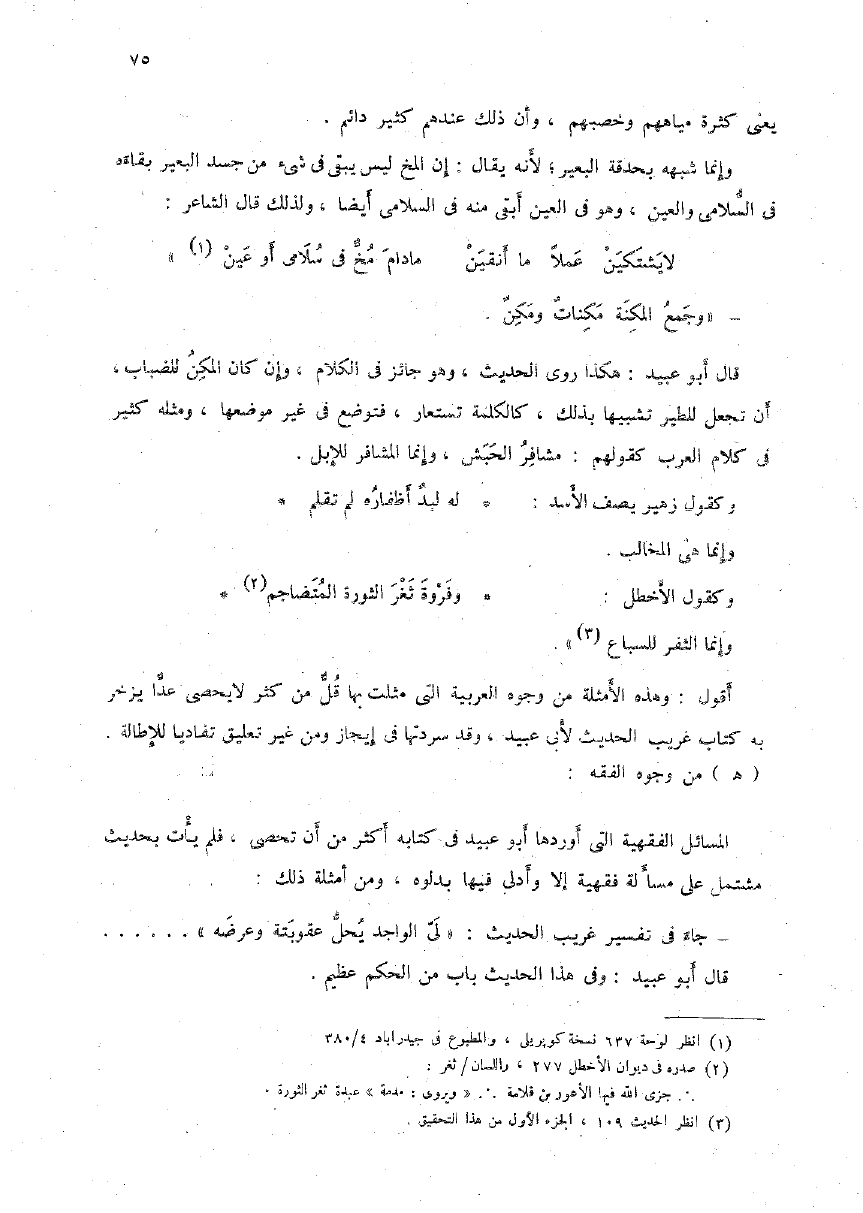 ٧٥
يعنى كثرة مياههم وخصبهم ، وأن ذلك عندهم كثير دائم .
وإنما شبهه بحدقة البعير ؛ لأنه يقال : إن المخ ليس يبقى فى شىء من جسد البعير بقاءه
فى السُّلامى والعين ، وهو فى العين أبقى منه فى السلامى أيضا ، ولذلك قال الشاعر :
لايَشتَكيَنْ عَملاً ما أنقيَنْ مادامَ مُخٌّ فى سُلَامى أو عَينْ (١) »
– «وجَمعُ المَكِنَة مَكِناتٌ ومَكِنٌ .
قال أبو عبيد : هكذا روى الحديث ، وهو جائز فى الكلام ، وإن كان المكِنُ للضباب ،
أن تجعل للطير تشبيها بذلك ، كالكلمة تستعار ، فتوضع فى غير موضعها ، ومثله كثير
فى كلام العرب كقولهم : مشافِرُ الحَبَش ، وإنما المشافر للإبل .
وكقول زهير يصف الأسد : * له لبدٌ أظفارُه لم تقلم *
وإنما هىَ المخالب .
وكقول الأخطل : * وفَرْوَةَ ثَغْرَ الثورة المُتَضاجم(٢) *
وإنما الثفر للسباع (٣)» .
أقول : وهذه الأمثلة من وجوه العربية التى مثلت بها قُلٌّ من كثر لايحصى عدًّا يزخر
به كتاب غريب الحديث لأبى عبيد ، وقد سردتها فى إيجاز ومن غير تعليق تفاديا للإطالة .
( ه ) من وجوه الفقه :
المسائل الفقهية التى أوردها أبو عبيد فى كتابه أكثر من أن تحصى ، فلم يأْت بحديث
مشتمل على مسألة فقهية إلا وأدلى فيها بدلوه ، ومن أمثلة ذلك :
– جاءَ فى تفسير غريب الحديث : « لَىّ الواجد يُحلُّ عقوبَتة وعرضَه » . . . . . .
قال أبو عبيد : وفى هذا الحديث باب من الحكم عظيم .
(١) انظر لوحة ٦٣٧ نسخة كوبريلى ، والمطبوع فى حيدراباد ٣٨٠/٤
(٢) صدره فى ديوان الأخطل ٢٧٧ ، واللسان/ ثغر :
∴ جزى الله فيها الأعور بن قلامة ∴ « ويروى : مذمة » عبدة ثغر الثورة .
(٣) انظر الحديث ١٠٩ ، الجزء الأول من هذا التحقيق .